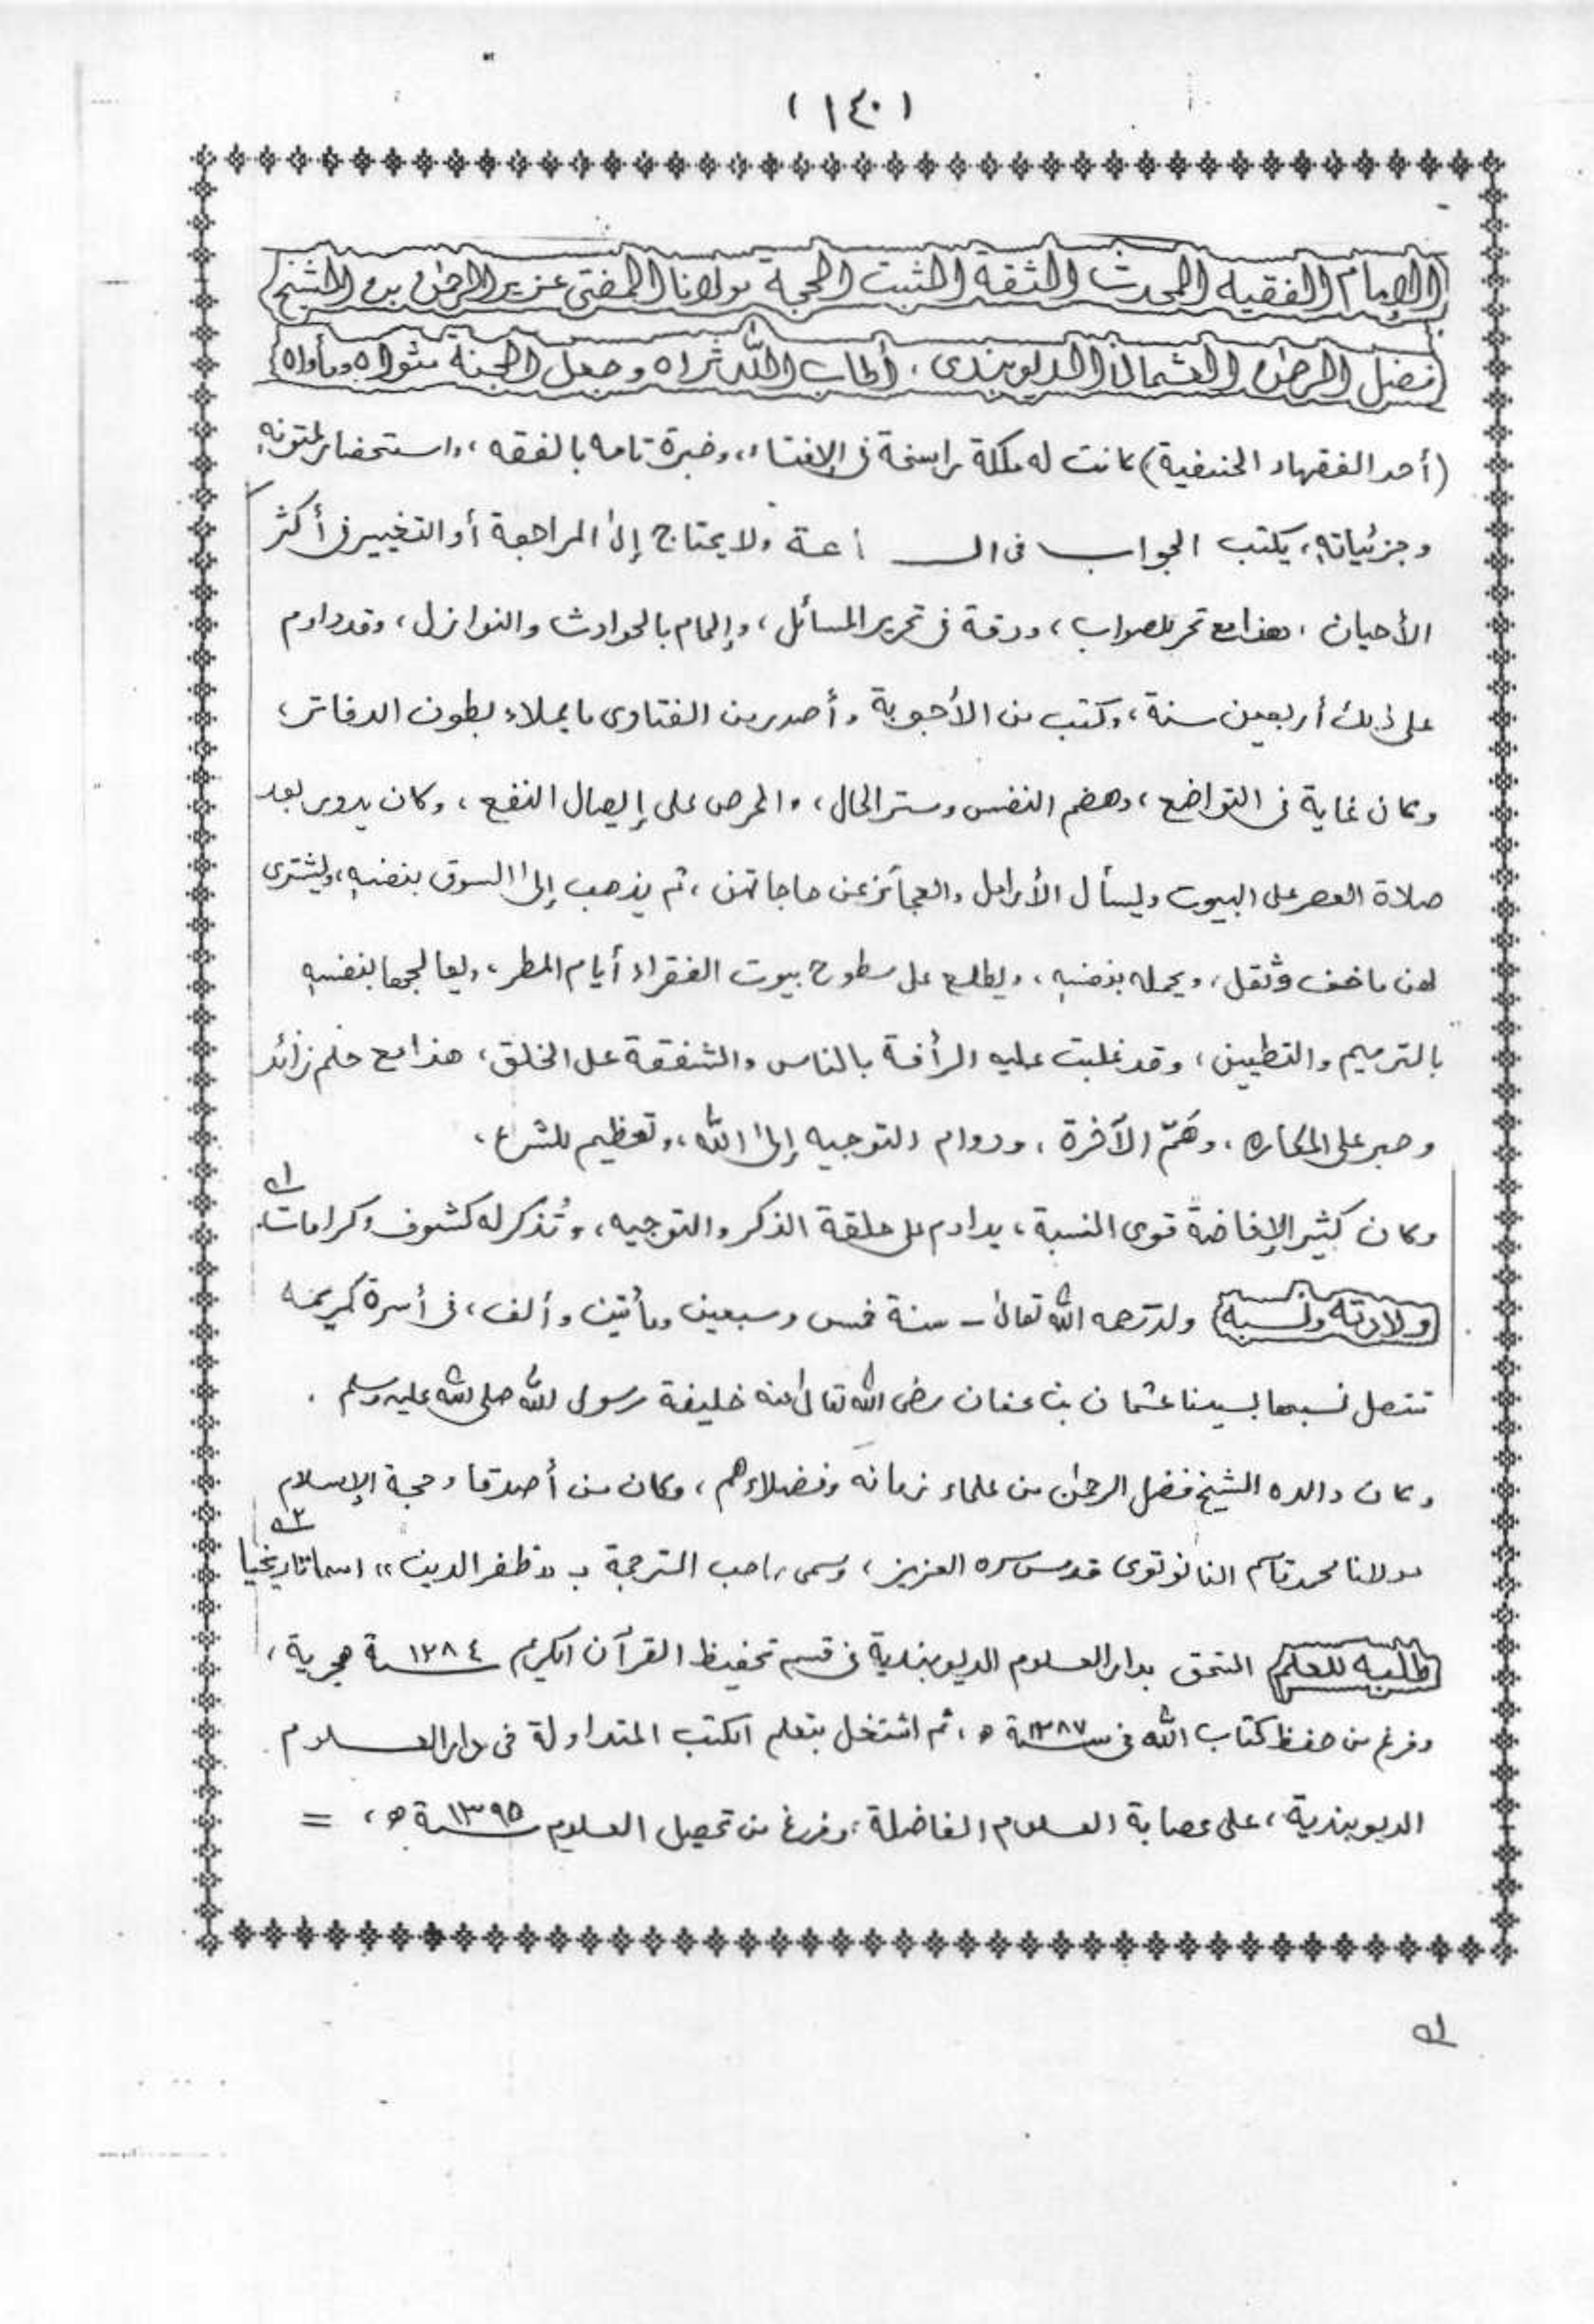 (١٤٠)
الإمام الفقيه المحدث الثقة الثبت الحجة مولانا المفتى عزيز الرحمٰن بن الشيخ
فضل الرحمٰن العثمانى الديوبندى، أطاب الله ثراه وجعل الجنة مثواه ومأواه
(أحد الفقهاء الحنفية) كانت له ملكة راسخة فى الإفتاء، وخبرة تامه بالفقه، واستحضار لمتونهٖ
وجزئياتهٖ، يكتب الجواب فى الســـاعة ولا يحتاج إلىٰ المراجعة أو التغيير فى أكثر
الأحيان، هذا مع تحر للصواب، ودقة فى تحرير المسائل، وإلمام بالحوادث والنوازل، وقد داوم
على ذلك أربعين سنة، وكتب من الأجوبة وأصدر من الفتاوى ما يملاء بطون الدفاتر،
وكان غاية فى التواضع، وهضم النفس وستر الحال، والحرص على إيصال النفع، وكان يدور بعد
صلاة العصر على البيوت ويسأل الأرامل والعجائز عن حاجاتهن، ثم يذهب إلىٰ السوق بنفسهٖ، ويشترى
لهن ما خف وثقل، ويحمله بنفسهٖ، ويطلع على سطوح بيوت الفقراء أيام المطر، ويعالجها بنفسهٖ
بالترميم والتطيين، وقد غلبت عليه الرأفة بالناس والشفقة على الخلق، هذا مع حلم زائد
وصبر على المكاره، وهَمّ الآخرة، ودوام التوجيه إلىٰ الله، وتعظيم للشرع،
وكان كثير الإفاضة قوى النسبة، يداوم على حلقة الذكر والتوجيه، وتُذكر له كشوف وكرامات. ١؎
ولادته ونسبه ولد رحمه الله تعالىٰ - سنة خمس وسبعين ومأتين وألف، فى أسرة كريمه
تتصل نسبها بسيدنا عثمان بن عفان رضى الله تعالىٰ عنه خليفة رسول الله صلى الله عليه وسلم .
وكان والده الشيخ فضل الرحمٰن من علماء زمانه وفضلاءهم، وكان من أصدقاء حجة الإسلام
مولانا محمد قاسم النانوتوى قدس سره العزيز، وسمى صاحب الترجمة بـ "ظفر الدين" اسما تاريخيا ٢؎
طلبه للعلم التحق بدار العلوم الديوبندية فى قسم تحفيظ القرآن الكريم ١٢٨٤ سنة هجرية،
وفرغ من حفظ كتاب الله فى سنة ١٢٨٧ ھ، ثم اشتغل بتعلم الكتب المتداولة فى دار العلوم
الديوبندية، على عصابة العلوم الفاضلة، وفرغ من تحصيل العلوم سنة ١٣٩٥ ھ، =
١؎